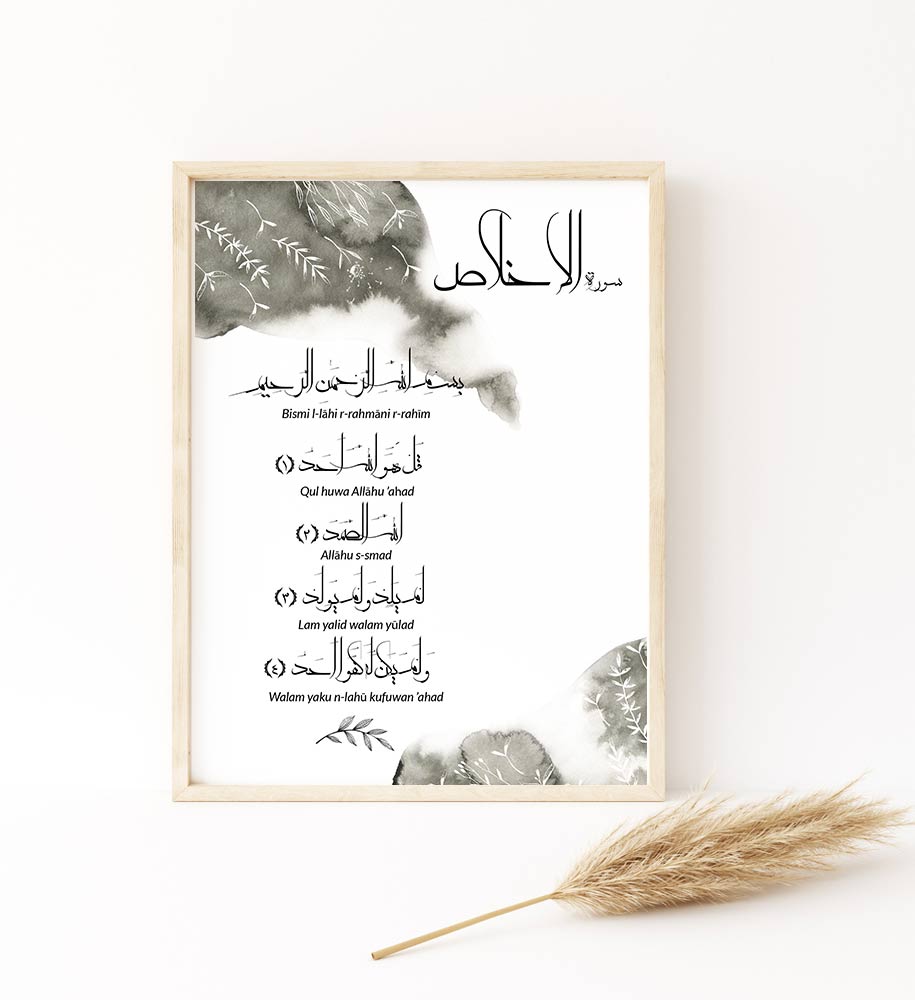 سورة الاخلاص
بِسْمِ اللَّهِ الرَّحْمَٰنِ الرَّحِيمِ
Bismi l-lāhi r-rahmāni r-rahīm
قُلْ هُوَ اللَّهُ أَحَدٌ (١)
Qul huwa Allāhu 'ahad
اللَّهُ الصَّمَدُ (٢)
Allāhu s-smad
لَمْ يَلِدْ وَلَمْ يُولَدْ (٣)
Lam yalid walam yūlad
وَلَمْ يَكُن لَّهُ كُفُوًا أَحَدٌ (٤)
Walam yaku n-lahū kufuwan 'ahad